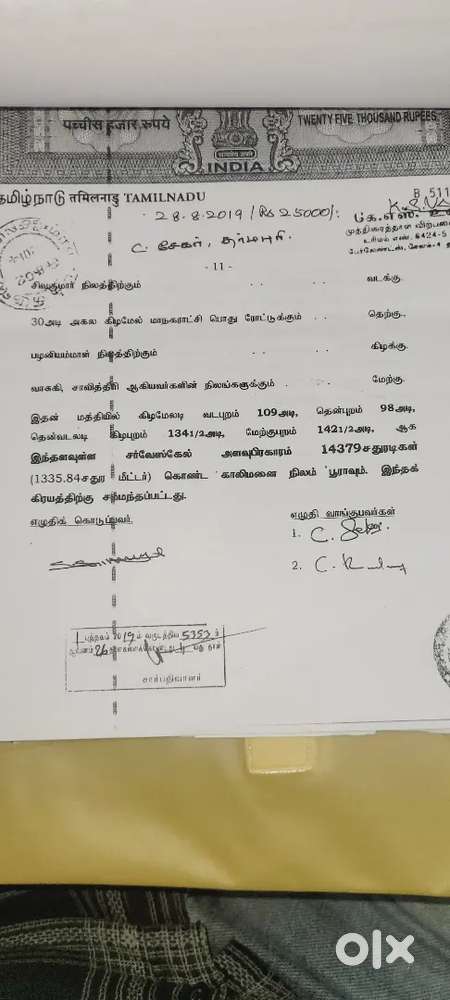 पच्चीस हजार रुपये
TWENTY FIVE THOUSAND RUPEES
INDIA
தமிழ்நாடு तमिलनाडु TAMILNADU
B 511
28.8.2019 / Rs 25000/-
C. சேகர், தர்மபுரி.
முத்திரைத்தாள் விற்பனை
உரிமம் எண். 8424-5
- 11 -
சிவகுமார் நிலத்திற்கும் . . . . வடக்கு.
30அடி அகல கிழமேல் மாநகராட்சி பொது ரோட்டுக்கும் . . தெற்கு..
பழனியம்மாள் நிலத்திற்கும் . . . . கிழக்கு.
வாசுகி, சாவித்திரி ஆகியவர்களின் நிலங்களுக்கும் . . . மேற்கு.
இதன் மத்தியில் கிழமேலடி வடபுறம் 109அடி, தென்புறம் 98அடி,
தென்வடலடி கிழபுறம் 1341/2அடி, மேற்குபுறம் 1421/2அடி, ஆக
இந்தளவுள்ள சர்வேஸ்கேல் அளவுபிரகாரம் 14379சதுரடிகள்
(1335.84சதுர மீட்டர்) கொண்ட காலிமனை நிலம் பூராவும். இந்தக்
கிரயத்திற்கு சம்மந்தப்பட்டது.
எழுதிக் கொடுப்பவர்.
எழுதி வாங்குபவர்கள்
1. C.
2. C.
1 புத்தகம் 2019ம் வருடத்திய 5353 ம்
சார்பதிவாளர்
olx